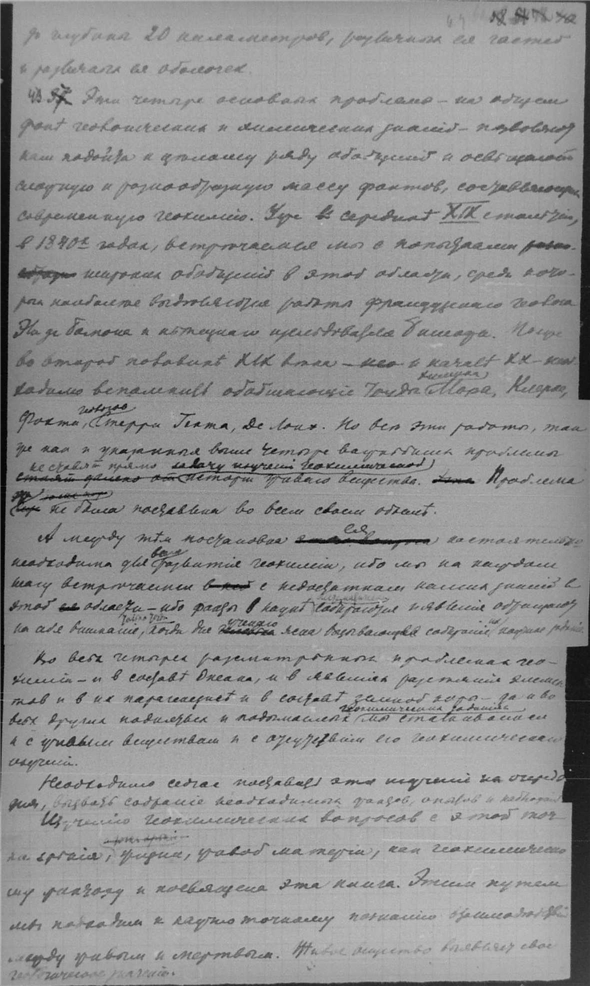 до глубины 20 километров, различных ея частей
и различных ея оболочек.
43 Эти четыре основных проблемы – на общем
фоне геологических и химических знаний – позволяют
нам подойти к целому ряду обобщений и освещают
сложную и разнообразную массу фактов, составляющих
современную геохимию. Уже в середине XIX столетия,
в 1840х годах, встречаемся мы с попытками
широких обобщений в этой области, среди кото-
рых наиболее выдвигаются работы французскаго геолога
Эли де Бомона и немецкаго изследователя Бишофа. Позже
во второй половине XIX века и начале XX необ-
ходимо вспомнить обобщающие труды химика Мора, Клерка,
Фохта, геологов Стерри Гента, Де Лоне. Но все эти работы, так
же как и указанныя выше четыре проблемы
не ставят прямо задачу изучения геохимической
истории живого вещества. Проблема
не была поставлена во всем своем объеме.
А между тем постановка ея настоятельно
необходима для развития геохимии, ибо мы на каждом
шагу встречаемся с недостатками наших знаний в
этой области – ибо факты в науке и явления обращают
на себя внимание, когда для ученаго ясна
Во всех четырех разсмотренных проблемах гео-
химии – и в составе Океана, и в явлениях разсеяния элемен-
тов и в их парагенезисе и в составе земной коры – да и во
всех других геохимических заданиях мы сталкивались
и с живым веществом и с отсутствием его геохимическаго
изучения.
Необходимо сейчас поставить это изучение на очередь
дня, вызвать собрание необходимых фактов, опытов и наблюдений
Изучению геохимических вопросов с этой точ-
ки зрения, живой материи, как геохимическо-
му фактору и посвящена эта книга. Этим путем
мы подходим к научно точному познанию взаимодействия
между живым и мертвым. Живое вещество выявляет свое
геологическое значение.